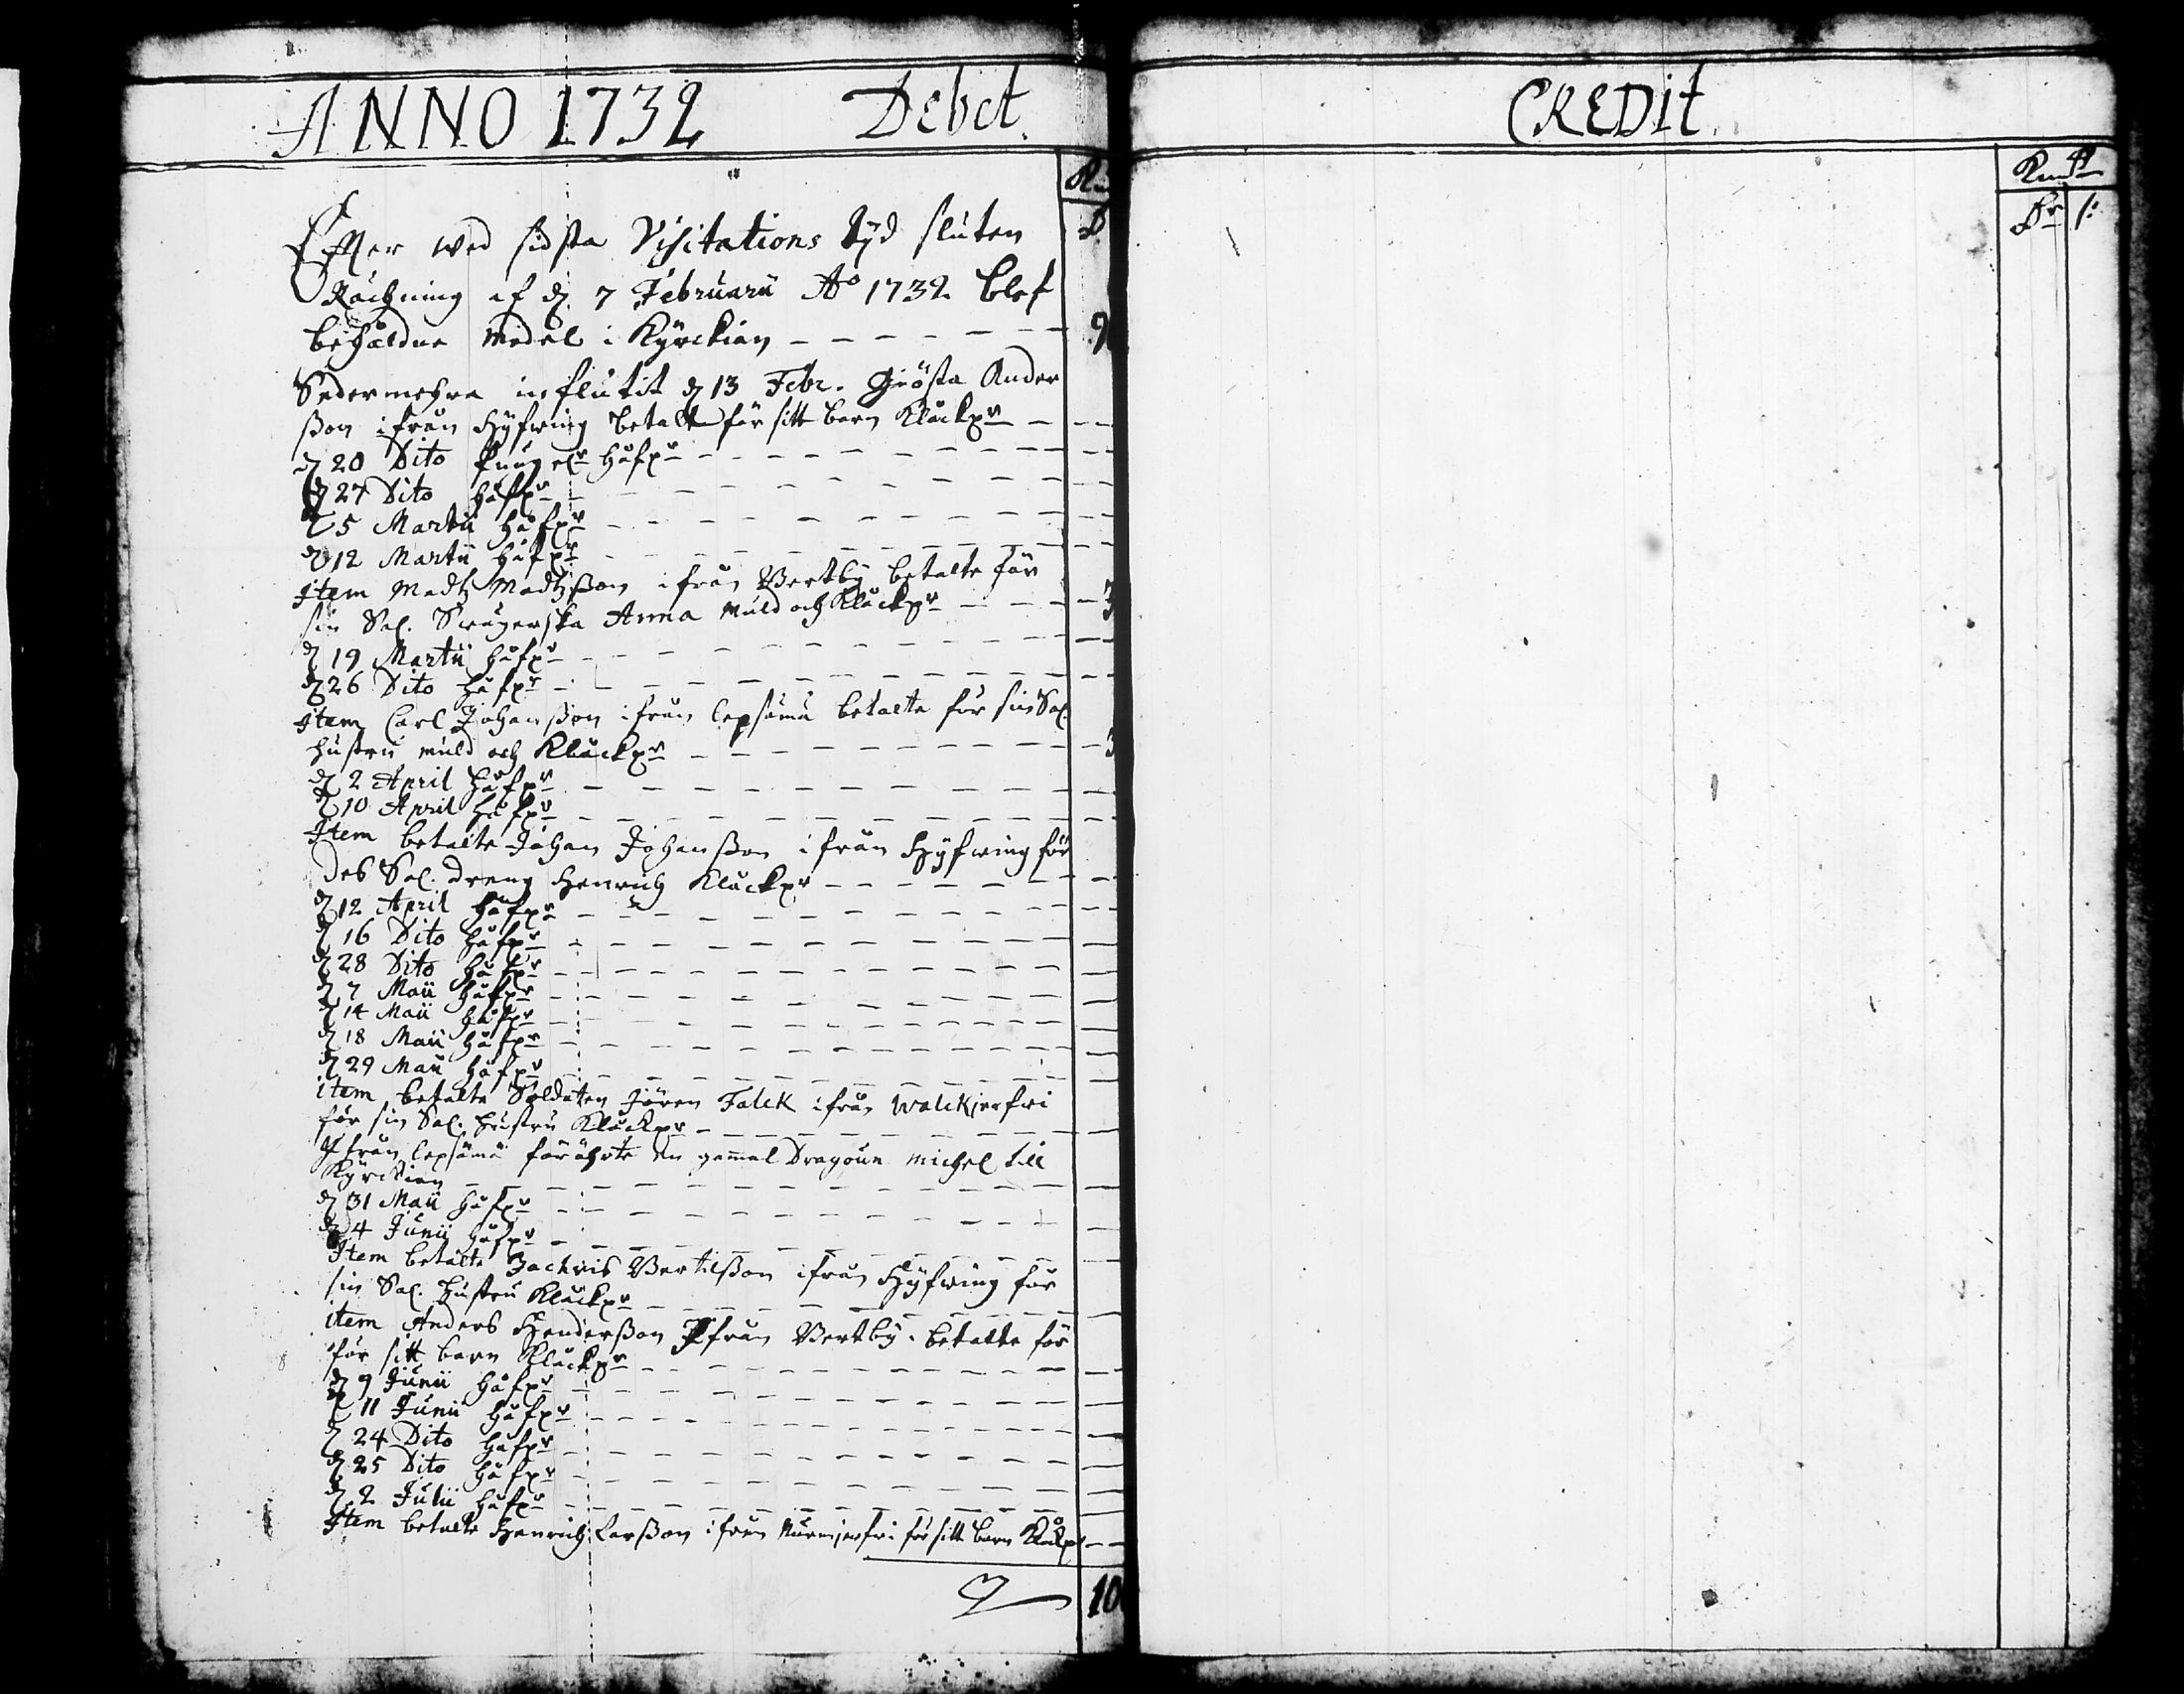 ANNO 1732 Debet.
Effter wed sidsta Visitations tyd sluten
Räckning af d. 7 Februarii Ao 1732 blef
behåldne medel i Kyrckian
9
Sedermehra influtit d 13 Febr. Giösta Ander
ßon ifrån Hyfwing betalte för sitt barn Klåckpr
d 20 Dito håfpr
d 27 Dito håfpr
d 5 Martii håfpr
d 12 Martii håfpr
Item Madtz Madtzßon ifrån Bertby betalte för
sin Sal. Swägerska Anna muld och Klåckpr
3
d 19 Martii håfpr
d 26 Dito håfpr
Item Carl Johanßon ifrån lepsämä betalte för sin Sal.
hustru muld och Klåckpr
3
d 2 April håfpr
d 10 April håfpr
Item betalte Johan Johanßon ifrån Hyfwing för
deß Sal. dreng Henrich Klåckpr
d 12 April håfpr
d 16 Dito håfpr
d 28 Dito håfpr
d 7 Maii håfpr
d 14 Maii håfpr
d 18 Maii håfpr
d 29 Maii håfpr
item betalte Soldaten Jören Falck ifrån Walckjerfwi
för sin Sal. hustru Klåckpr
Ifrån lepsämä förährte en gammal Dragoun michel till
Kyrckian
d 31 Maii håfpr
d 4 Junii håfpr
Item betalte Zachris Bertilßon ifrån Hyfwing för
sin Sal. hustru Klåckpr
item Anders Henderßon Ifrån Bertby betalte för
för sitt barn Klåckpr
d 9 Junii håfpr
d 11 Junii håfpr
d 24 Dito håfpr
d 25 Dito håfpr
d 2 Julii håfpr
Item betalte Henrich Larßon ifrån Nurmjerfwi för sitt barn Klåckpr
10
CREDIt.